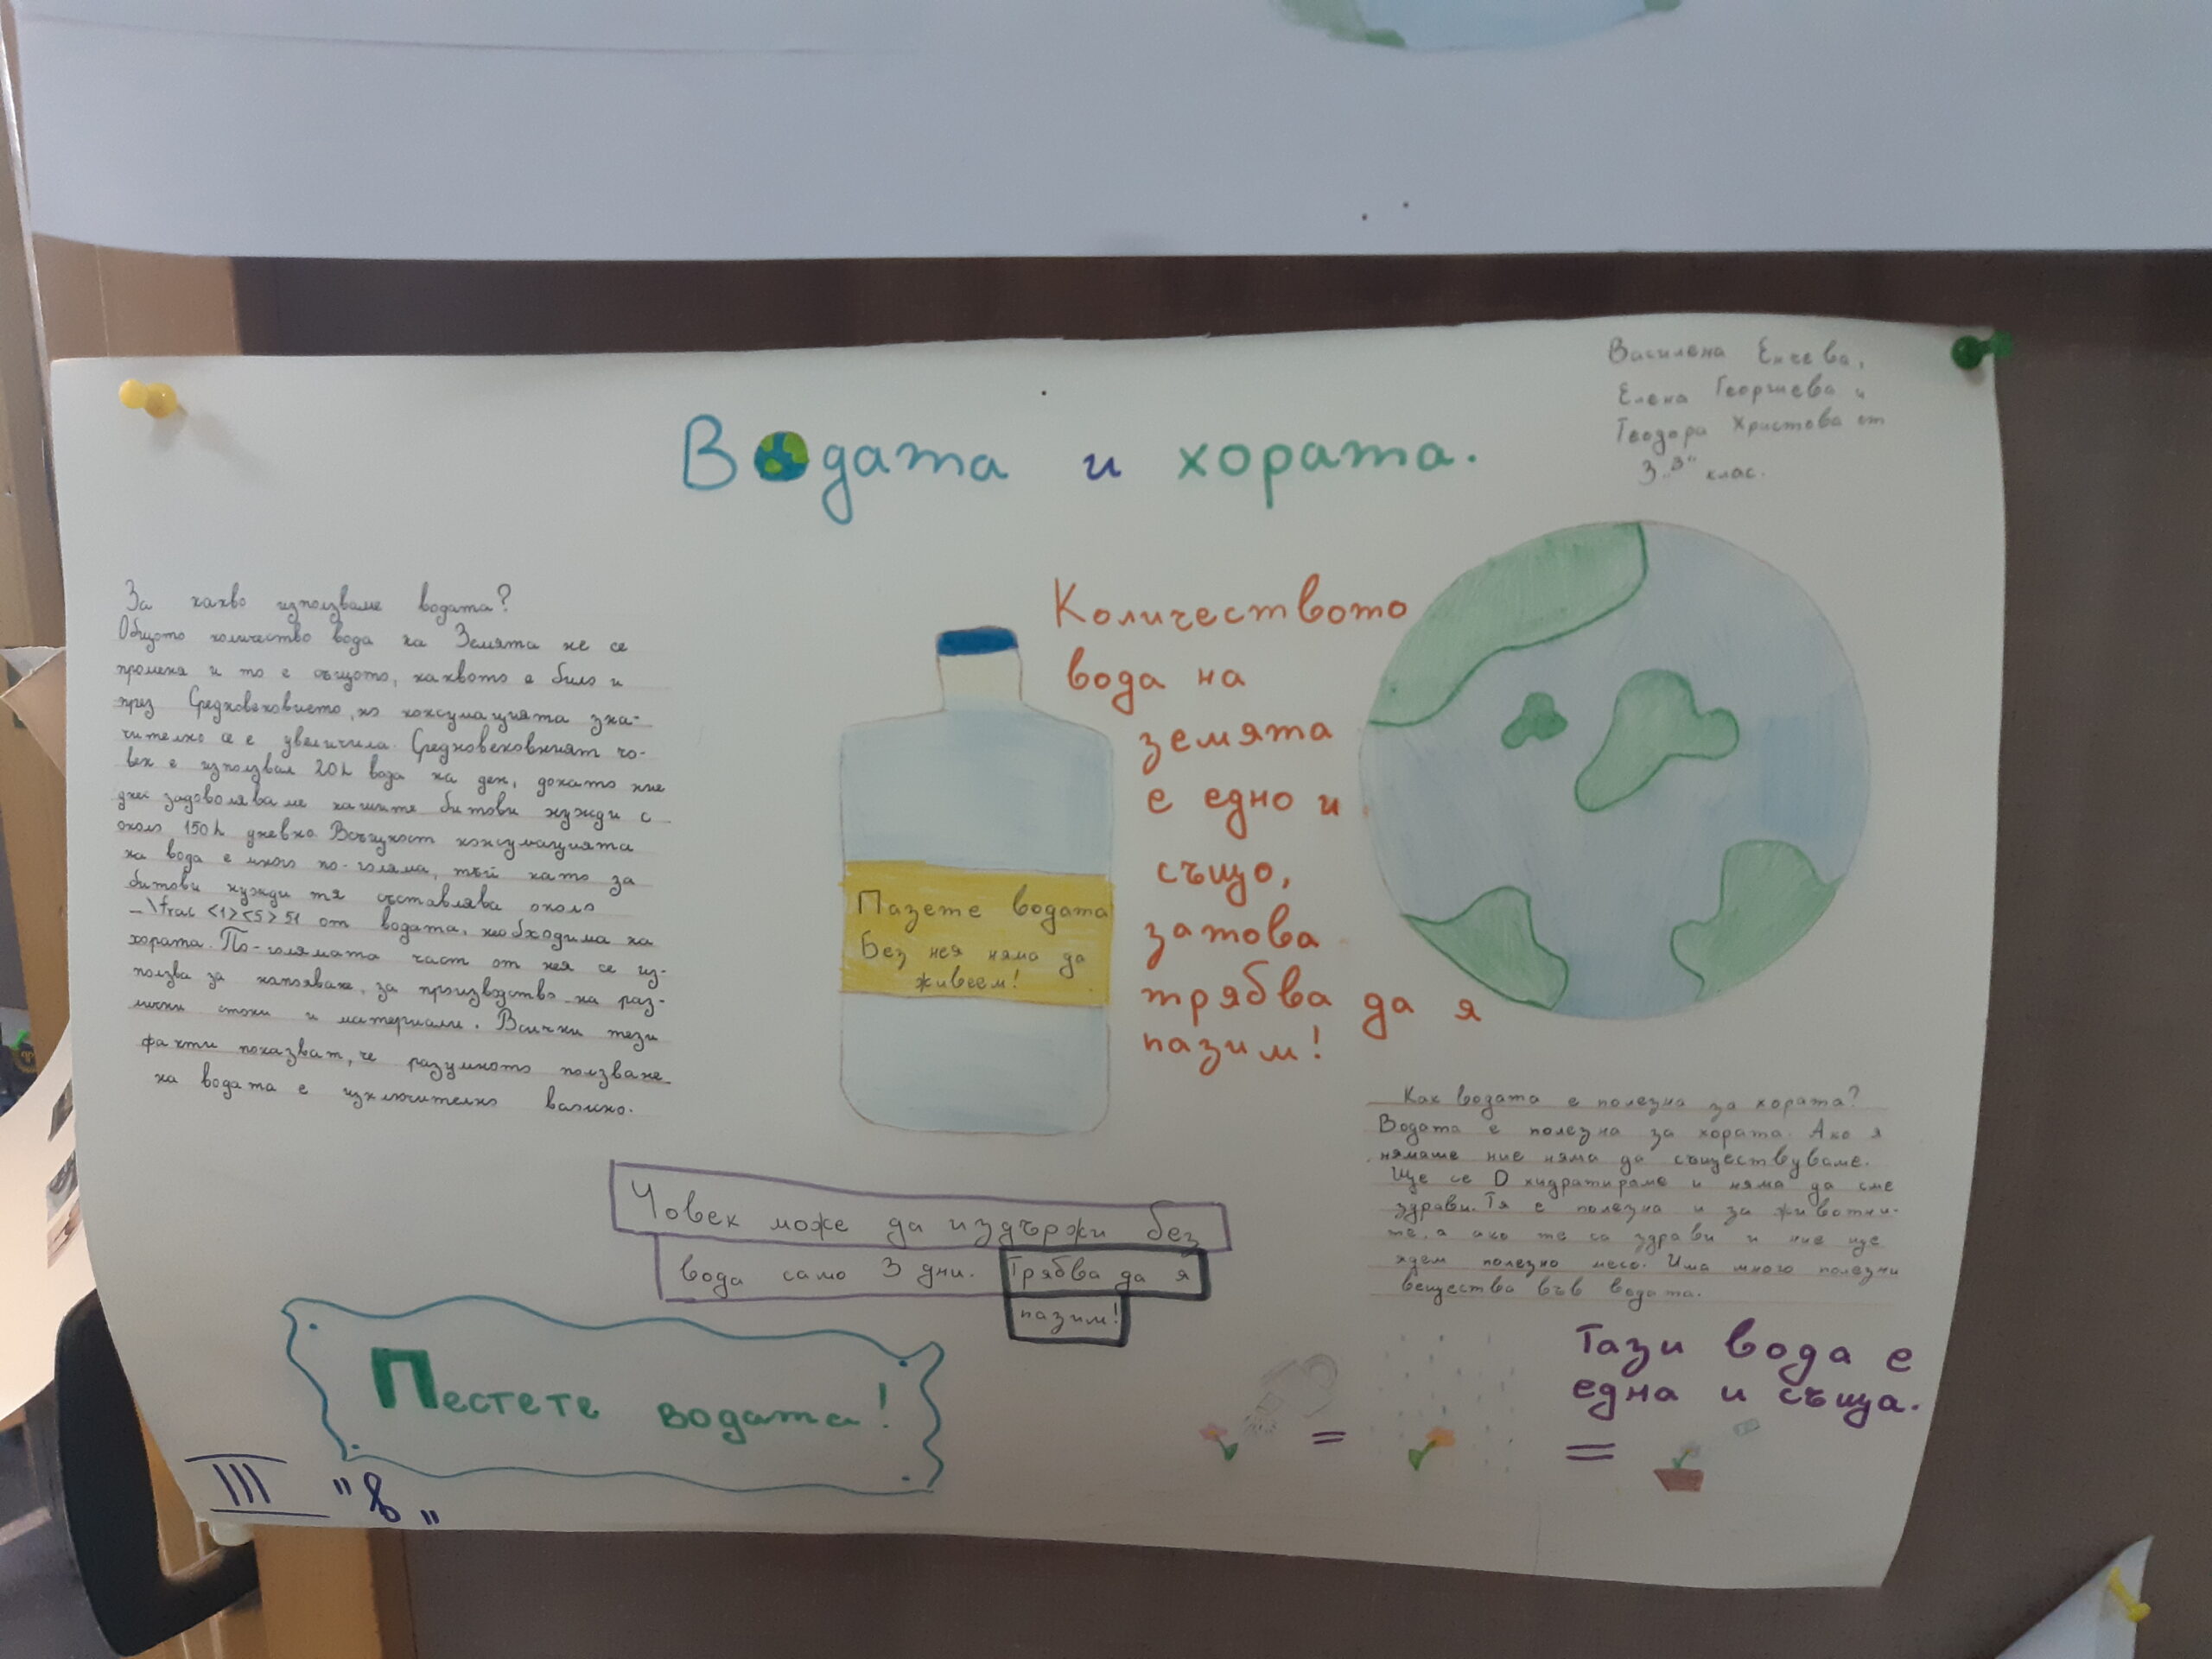 Василена Енчева,
Елена Георгиева и
Теодора Христова от
3 „В“ клас.
Водата и хората.
За какво използваме водата?
Общото количество вода на Земята не се
променя и то е същото, каквото е било и
през Средновековието, но консумацията зна-
чително се е увеличила. Средновековният чо-
век е използвал 20 L вода на ден, докато ние
днес задоволяваме нашите битови нужди с
около 150 L дневно. Всъщност консумацията
на вода е много по-голяма, тъй като за
битови нужди тя съставлява около
_\frac <1><5> 51 от водата, необходима на
хората. По-голямата част от нея се из-
ползва за напояване, за производство на раз-
лични стоки и материали. Всички тези
факти показват, че разумното ползване
на водата е изключително важно.
Пазете водата
Без нея няма да
живеем!
Количеството
вода на
земята
е едно и
също,
затова
трябва да я
пазим!
Как водата е полезна за хората?
Водата е полезна за хората. Ако я
нямаше ние няма да съществуваме.
Ще се D хидратираме и няма да сме
здрави. Тя е полезна и за животни-
те, а ако те са здрави и ние ще
ядем полезно месо. Има много полезни
вещества във водата.
Човек може да издържи без
вода само 3 дни. Трябва да я
пазим!
Пестете водата!
Тази вода е
една и съща.
= =
III "в„